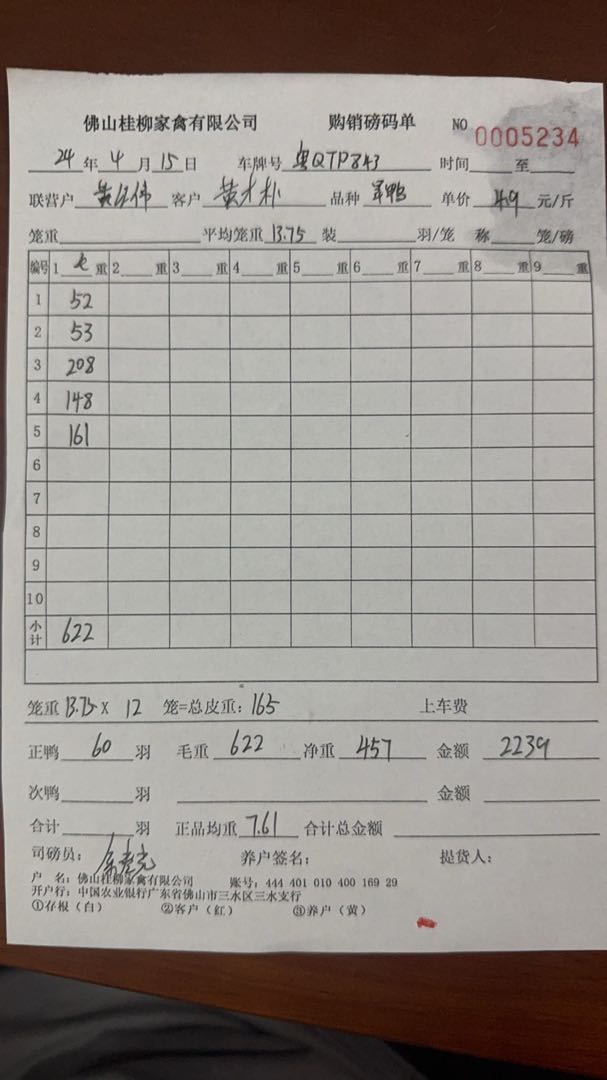 佛山桂柳家禽有限公司 购销磅码单 NO 0005234
24年4月15日 车牌号 粤QTP843 时间 至
联营户 伟 客户 黄才朴 品种 鸭 单价 4.9 元/斤
笼重 平均笼重 13.75 装 羽/笼 称 笼/磅
编号 1 毛 重 2 重 3 重 4 重 5 重 6 重 7 重 8 重 9 重
1 52
2 53
3 208
4 148
5 161
6
7
8
9
10
小计 622
笼重 13.75 X 12 笼=总皮重: 165 上车费
正鸭 60 羽 毛重 622 净重 457 金额 2239
次鸭 羽 金额
合计 羽 正品均重 7.61 合计总金额
司磅员: 养户签名: 提货人:
户 名: 佛山桂柳家禽有限公司 账号: 444 401 010 400 169 29
开户行: 中国农业银行广东省佛山市三水区三水支行
①存根（白） ②客户（红） ③养户（黄）